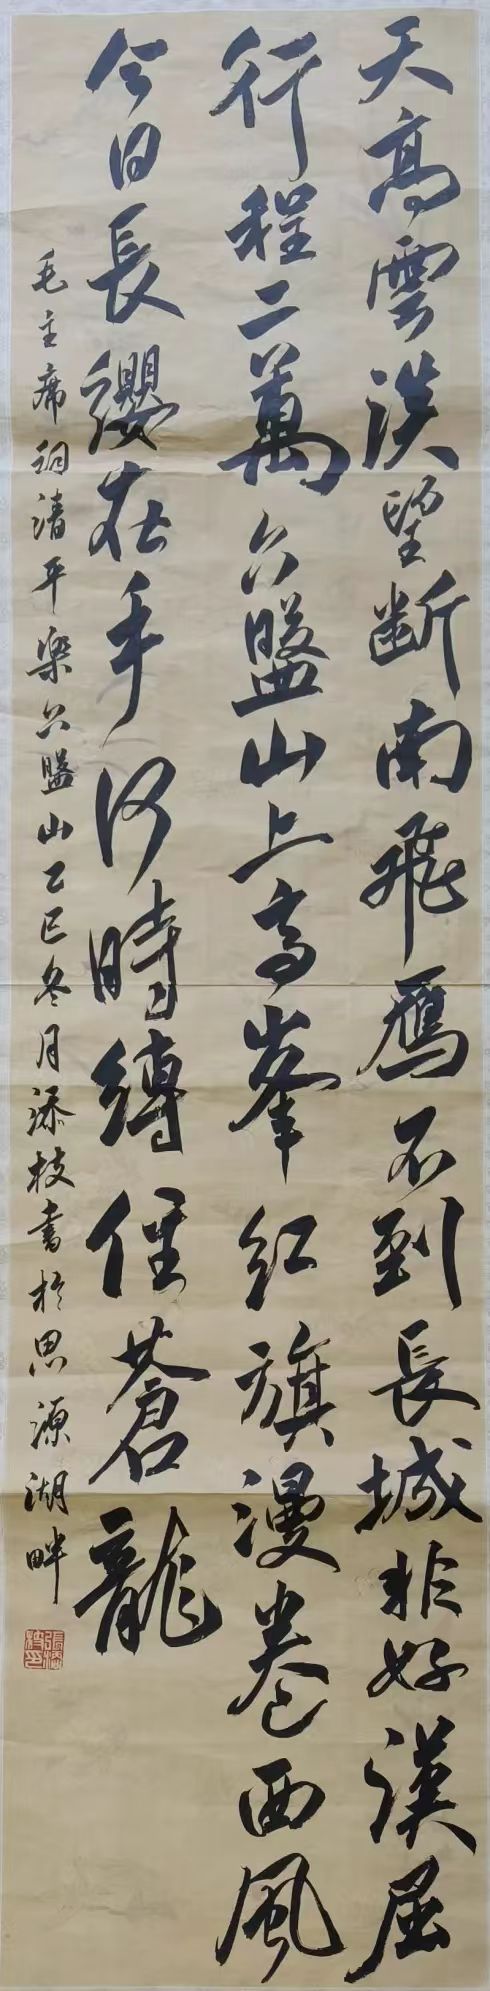 天高雲淡望斷南飛雁不到長城非好漢屈
行程二萬六盤山上高峯紅旗漫卷西風
今日長纓在手何時縛住蒼龍
毛主席詞清平樂六盤山乙巳冬月添枝書於思源湖畔